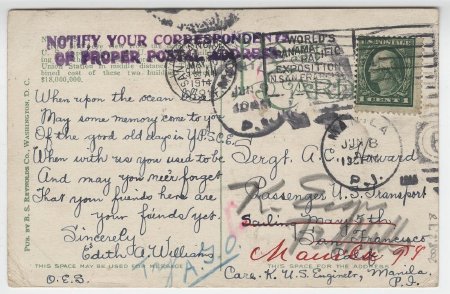 NOTIFY YOUR CORRESPONDENTS
OF PROPER POSTAL ADDRESS
Union Station in middle distance
bined cost of these two buildings
$18,000,000.
PUB. BY B. S. REYNOLDS CO., WASHINGTON, D. C.
When upon the ocean
May some memory come to you
Of the good old days in Y.P.S.C.E.
When with us you used to be
And may you ne'er forget
That your friends here are
your friends yet.
Sincerely
Edith A. Williams
O.E.S.
THIS SPACE MAY BE USED FOR MESSAGE
WORLD'S
PANAMA-PACIFIC
EXPOSITION
IN SAN FRANCISCO
CARD
1 CENT 1
MANILA
JUN 8
P.I.
Sergt. A.C. Howard
Passenger U.S. Transport
Sailing May 5th
San Francisco
Manila P.I.
Care K. U.S. Engineers, Manila,
P.I.
THIS SPACE FOR THE ADDRESS